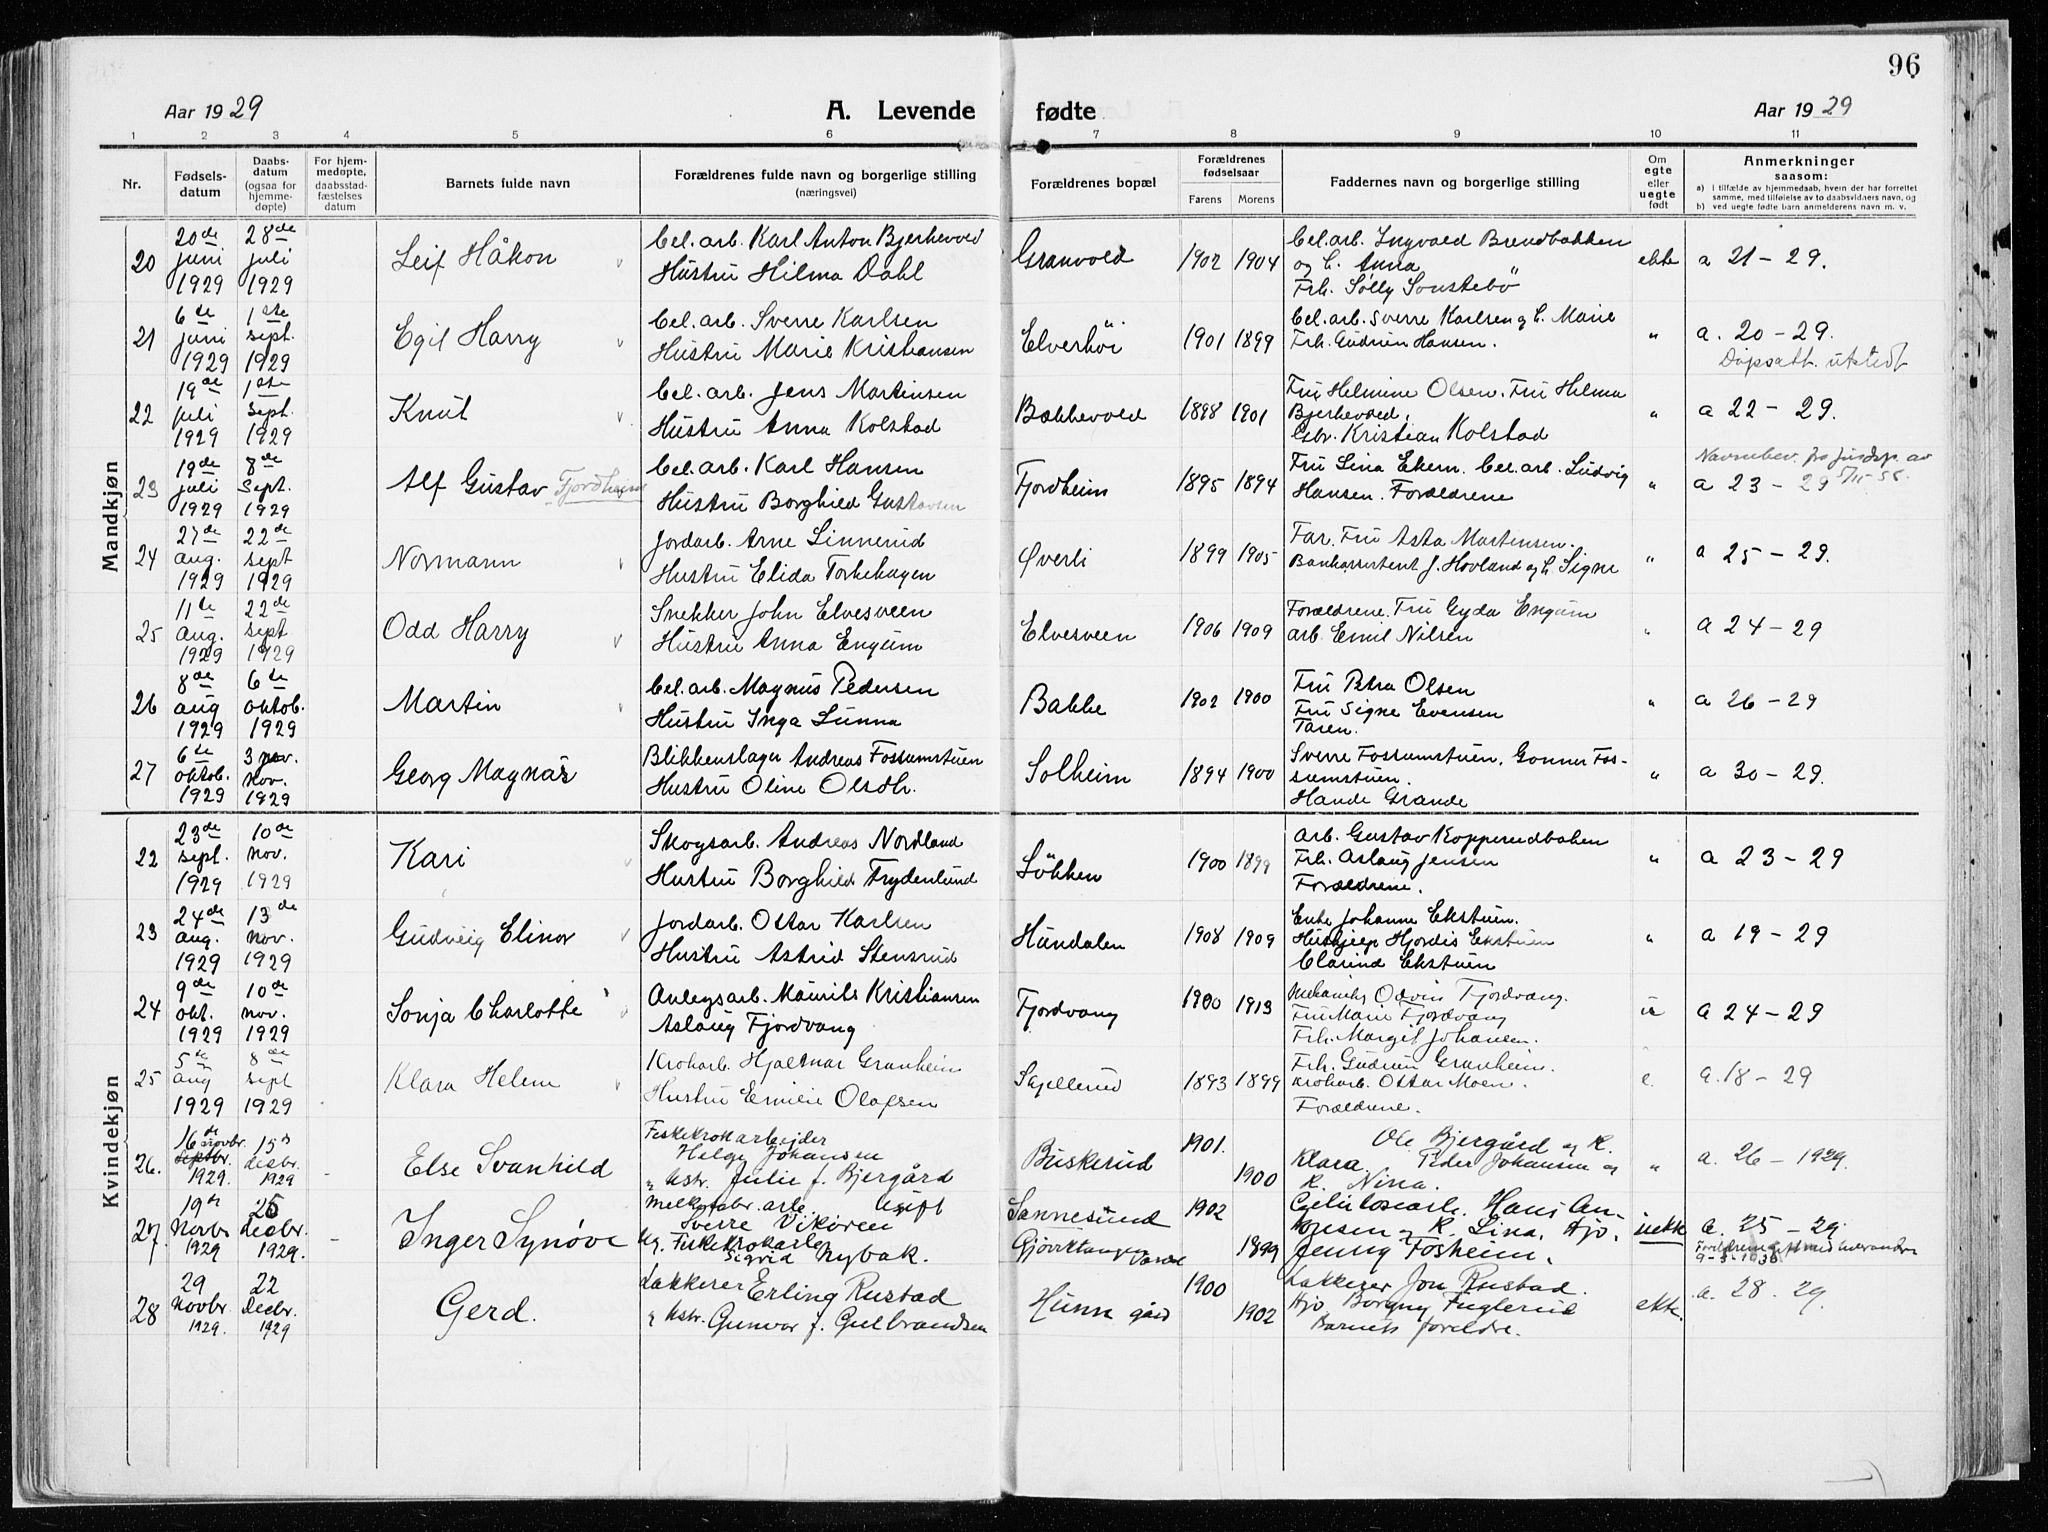 96
Aar 1929 A. Levende fødte Aar 1929
1 2 3 4 5 6 7 8 9 10 11
Nr. Fødsels-datum Daabs-datum (ogsaa for hjemme-døpte) For hjem-medøpte, daabsstad-fæstelses datum Barnets fulde navn Forældrenes fulde navn og borgerlige stilling (næringsvei) Forældrenes bopæl Forældrenes fødselsaar Farens Morens Faddernes navn og borgerlige stilling Om egte eller uegte født Anmerkninger saasom:
a) i tilfælde av hjemmedaab, hvem der har forrettet samme, med tilføielse av to daabsvidners navn, og
b) ved uegte fødte barn anmelderens navn m. v.
Mandkjøn
20de 28de Cel. arb. Karl Anton Bjerkevold Cel. arb. Ingvald Brendbakken
20 juni juli Leif Håkon Granvold 1902 1904 og h. Anna ekte a 21 - 29.
1929 1929 Hustru Hilma Dahl Frk. Solly Sønstebö
6te 1ste Cel. arb. Sverre Karlsen Cel. arb. Sverre Karlsen og h. Marie
21 juni sept. Egil Harry Elverhöi 1901 1899 Frk. Gudrun Hansen. " a. 20 - 29.
1929 1929 Hustru Marie Kristiansen Dåpsatt. utstedt
19de 1ste Cel. arb. Jens Martinsen Fru Helmine Olsen. Fru Hilma
22 juli sept. Knut Bakkevold 1898 1901 Bjerkevold. " a 22 - 29.
1929 1929 Hustru Anna Kolstad Gbr. Kristian Kolstad
19de 8de Cel. arb. Karl Hansen Fru Lina Ekern. Cel. arb. Ludvig Navnebev. fra av
23 juli sept. Alf Gustav Fjordheim Fjordheim 1895 1894 Hansen. Forældrene " a 23 - 29
1929 1929 Hustru Borghild Gustavsen
27de 22de Jordarb. Arne Linnerud Far. Fru Asta Martensen.
24 aug. sept Normann Øverli 1899 1905 Bankassistent J. Hovland og h. Signe " a 25 - 29.
1929 1929 Hustru Elida Torkehagen
11te 22de Snekker John Elvesveen Forældrene. Fru Gyda Engum
25 aug. sept Odd Harry Elvesveen 1906 1909 arb. Emil Nilsen " a 24 - 29
1929 1929 Hustru Anna Engum
8de 6te Cel. arb. Magnus Pedersen Fru Petra Olsen
26 aug oktob. Martin Bakke 1902 1900 Fru Signe Evensen " a 26 - 29
1929 1929 Hustru Inga Lunna Faren.
6te 3 nov. Blikkenslager Andreas Fossumstuen Sverre Fossumstuen, Gunner Fos-
27 oktob. nov. Georg Magnar Solheim 1894 1900 sumstuen. " a 30 - 29.
1929 1929 Hustru Oline Olsdtr. Grande
Kvindekjøn
23de 10de Skogsarb. Andreas Nordland arb. Gustav Kopperudbakken
22 sept. nov. Kari Lökken 1900 1899 Frk. Aslaug Jensen " a 23 - 29
1929 1929 Hustru Borghild Frydenlund Forældrene.
24de 13de Jordarb. Ottar Karlsen Enke Johanne Ekstuen.
23 aug. nov. Gudveig Elinor Hundalen 1908 1909 Hushjelp Hjordis Ekstuen " a 19 - 29
1929 1929 Hustru Astrid Stensrud Clarind Ekstuen
9de 10de Anlegsarb. Mauritz Kristiansen Mekaniker Odvin Fjordvang.
24 okt. nov. Sonja Charlotte Fjordvang 1900 1913 Fru Marie Fjordvang u a 24 - 29
1929 1929 Aslaug Fjordvang Frk. Margit Johansen.
5te 8de Krokarb. Hjalmar Granheim Frk. Gudrun Granheim.
25 aug sept Klara Helene Skjellerud 1893 1899 krokarb. Ottar Moen. e. a. 18 - 29
1929 1929 Hustru Emilie Olafsen Forældrene.
16de novbr. 15de Fiskekrokarbeider Ole Bjergård og K.
26. Septbr. desbr. Else Svanhild Helge Johansen Buskerud 1901. 1900 Klara. Peder Johansen og " a. 26 - 1929.
1929. 1929 " hstr. Julie f. Bjergård K. Nina.
19de 26 Melkefabr. arb. ugift Hans An-
27. Novbr Desbr. Inger Synøve Sverre Vikøren Sannesund 1902 K. Lina, Hjo. uekte a. 25 - 29.
1929 1929. ug. Fiskekrokarb. Sigrid Nybak. Gjøvik 1899 Jenny Fosheim. Foreldrene gift med hverandre 9-3-1930
29 22 Lakkerer Erling Rustad 1900 Lakkerer Jon Rustad.
28 Novbr. Decbr. Gerd. Hunn gård 1902 Hjo. Borgny Fuglerud ekte. a. 28. 29.
1929. 1929 " hstr. Gunvor f. Gulbrandsen Barnets foreldre.